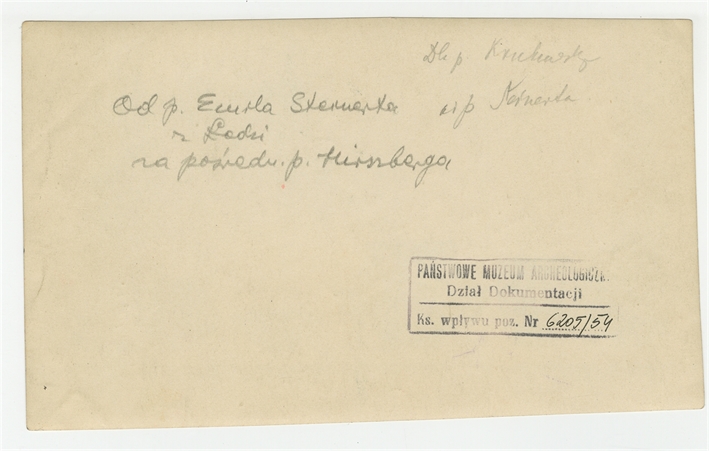 Dla p.
Od p. Emila Sternerta
z Łodzi
za pośredn. p. Hirszberga
PAŃSTWOWE MUZEUM ARCHEOLOGICZN.
Dział Dokumentacji
Ks. wpływu poz. Nr 6205/54